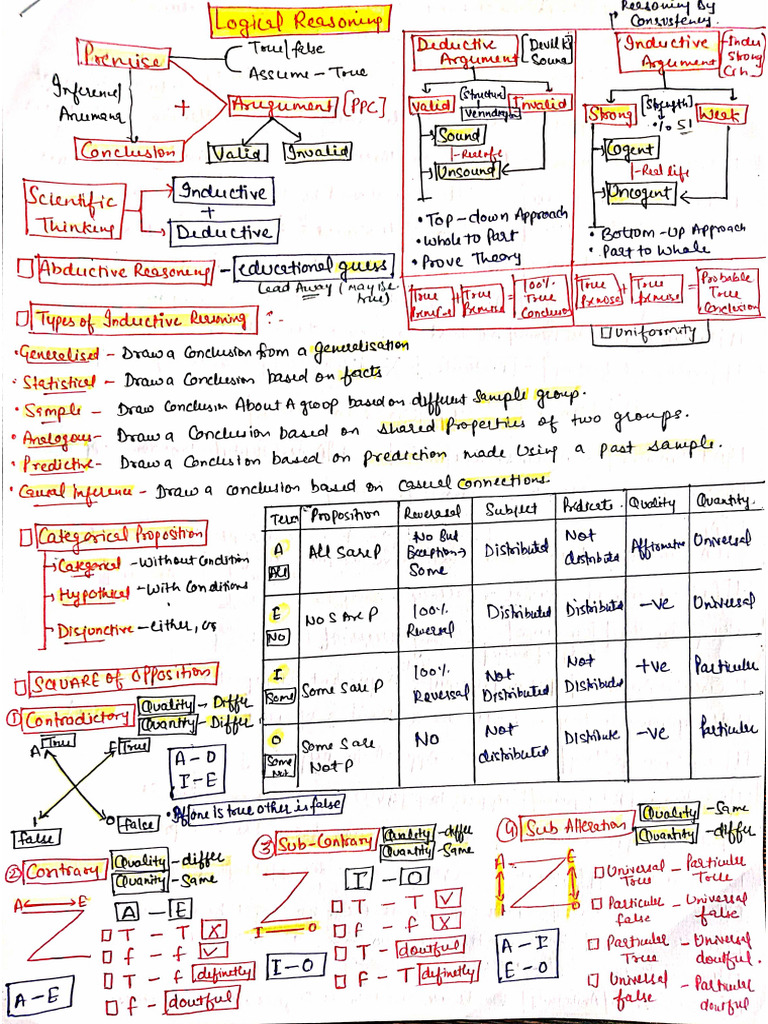 Logical Reasoning
Premise
True/false
Assume - True
Inference/
+
Arugument [PPC]
Conclusion
Valid
Invalid
Scientific
Thinking
Inductive
+
Deductive
Reasoning By
Consistency.
Deductive
Argument
Sound
[Structur]
Valid
Invalid
Sound
Unsound
• Top-down Approach
• Whole to Part
• Prove Theory
Inductive
Argument
Strong
[Strength]
Strong
Weak
Cogent
- Real life
Uncogent
• Bottom-Up Approach
• Part to Whole
True
+
True
=
100%
True
Conclusion
True
+
True
=
Probable
True
Conclusion
Uniformity
Abductive Reasoning - educational guess
Lead Away (may be true)
Types of Inductive Resoning :-
• Generalised - Draw a Conclusion from a generalisation
• Statistical - Draw a Conclusion based on facts
• Sample - Draw Conclusion About A group based on different Sample group.
• Analogous - Draw a Conclusion based on shared Properties of two groups.
• Predictive - Draw a Conclusion based on prediction made Using a past sample.
• Causal inference - Draw a conclusion based on casual connections.
Categorical Proposition
Categorical - Without Condition
Hypothical - With Conditions
Disjunctive - either, or
Term Proposition Reversal Subject Predicate Quality Quantity
A All All S are P No But Exception → Some Distributed Not distribute Affirmative Universal
E No No S Are P 100% Reversal Distributed Distributed -ve Universal
I Some Some S are P 100% Reversal Not Distributed Not Distributed +ve Particuler
O Some Not Some S are Not P No Not distributed Distribute -ve Particuler
SQUARE OF OPPOSITION
① Contradictory
Quality - Differ
Quantity - Differ
A True
E True
I false
O false
A - O
I - E
• If one is true other is false
② Contrary
Quality - differ
Quantity - Same
A E
A - E
T - T X
f - f ✓
T - f definetly
f - doutful
A - E
③ Sub-Contrary
Quality - differ
Quantity - Same
I O
I - O
T - T ✓
f - f X
T - doutful
f - T definetly
I - O
④ Sub Alteration
Quality - Same
Quantity - differ
A E
I O
A - I
E - O
Universal True - Particuler True
Particuler false - Universal false
Particuler True - Universal doutful.
Universal false - Particuler doutful